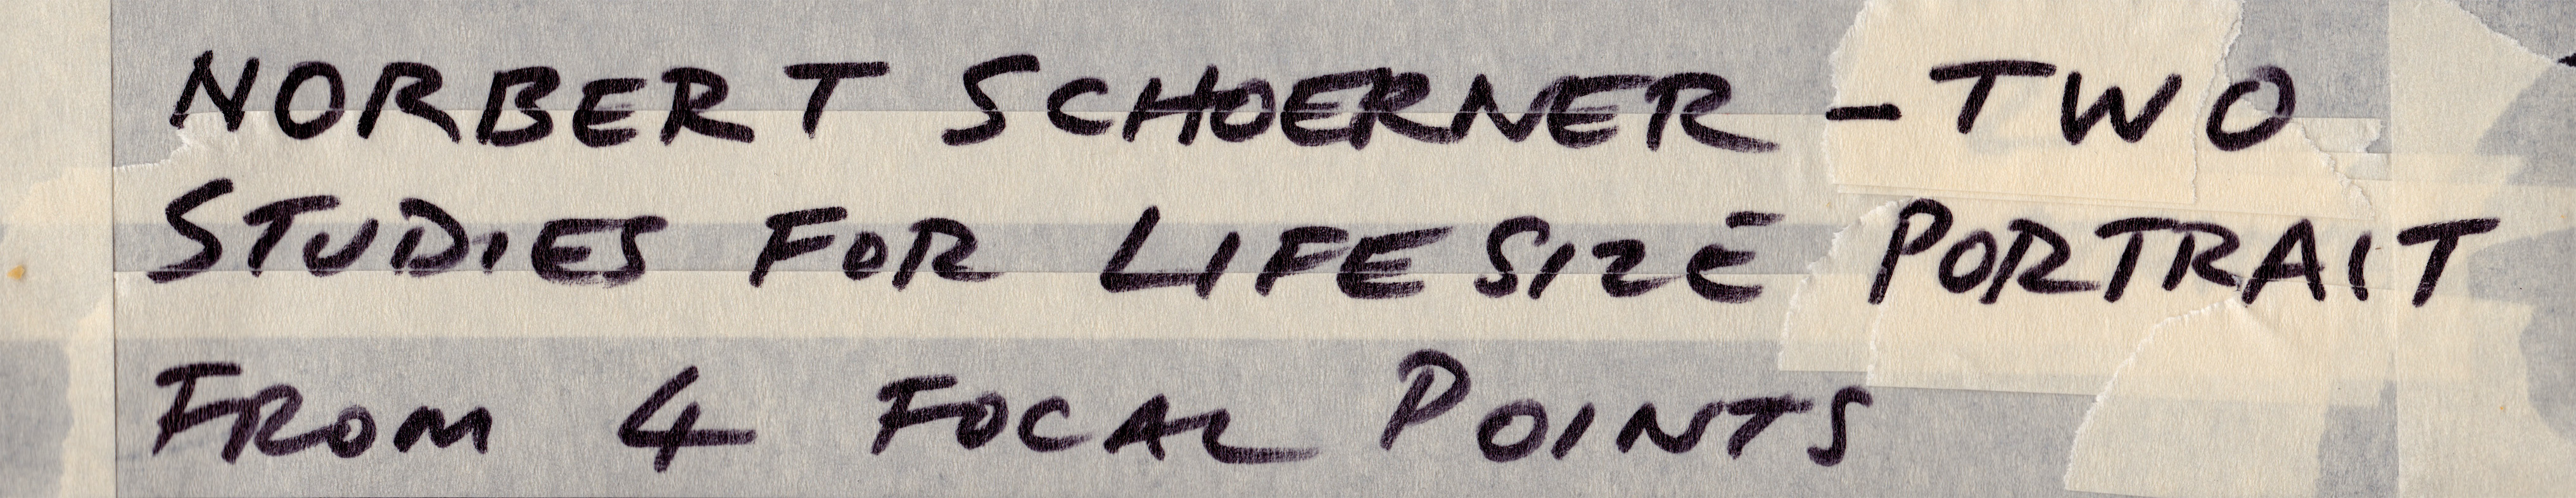 NORBERT SCHOERNER - TWO
STUDIES FOR LIFESIZE PORTRAIT
FROM 4 FOCAL POINTS